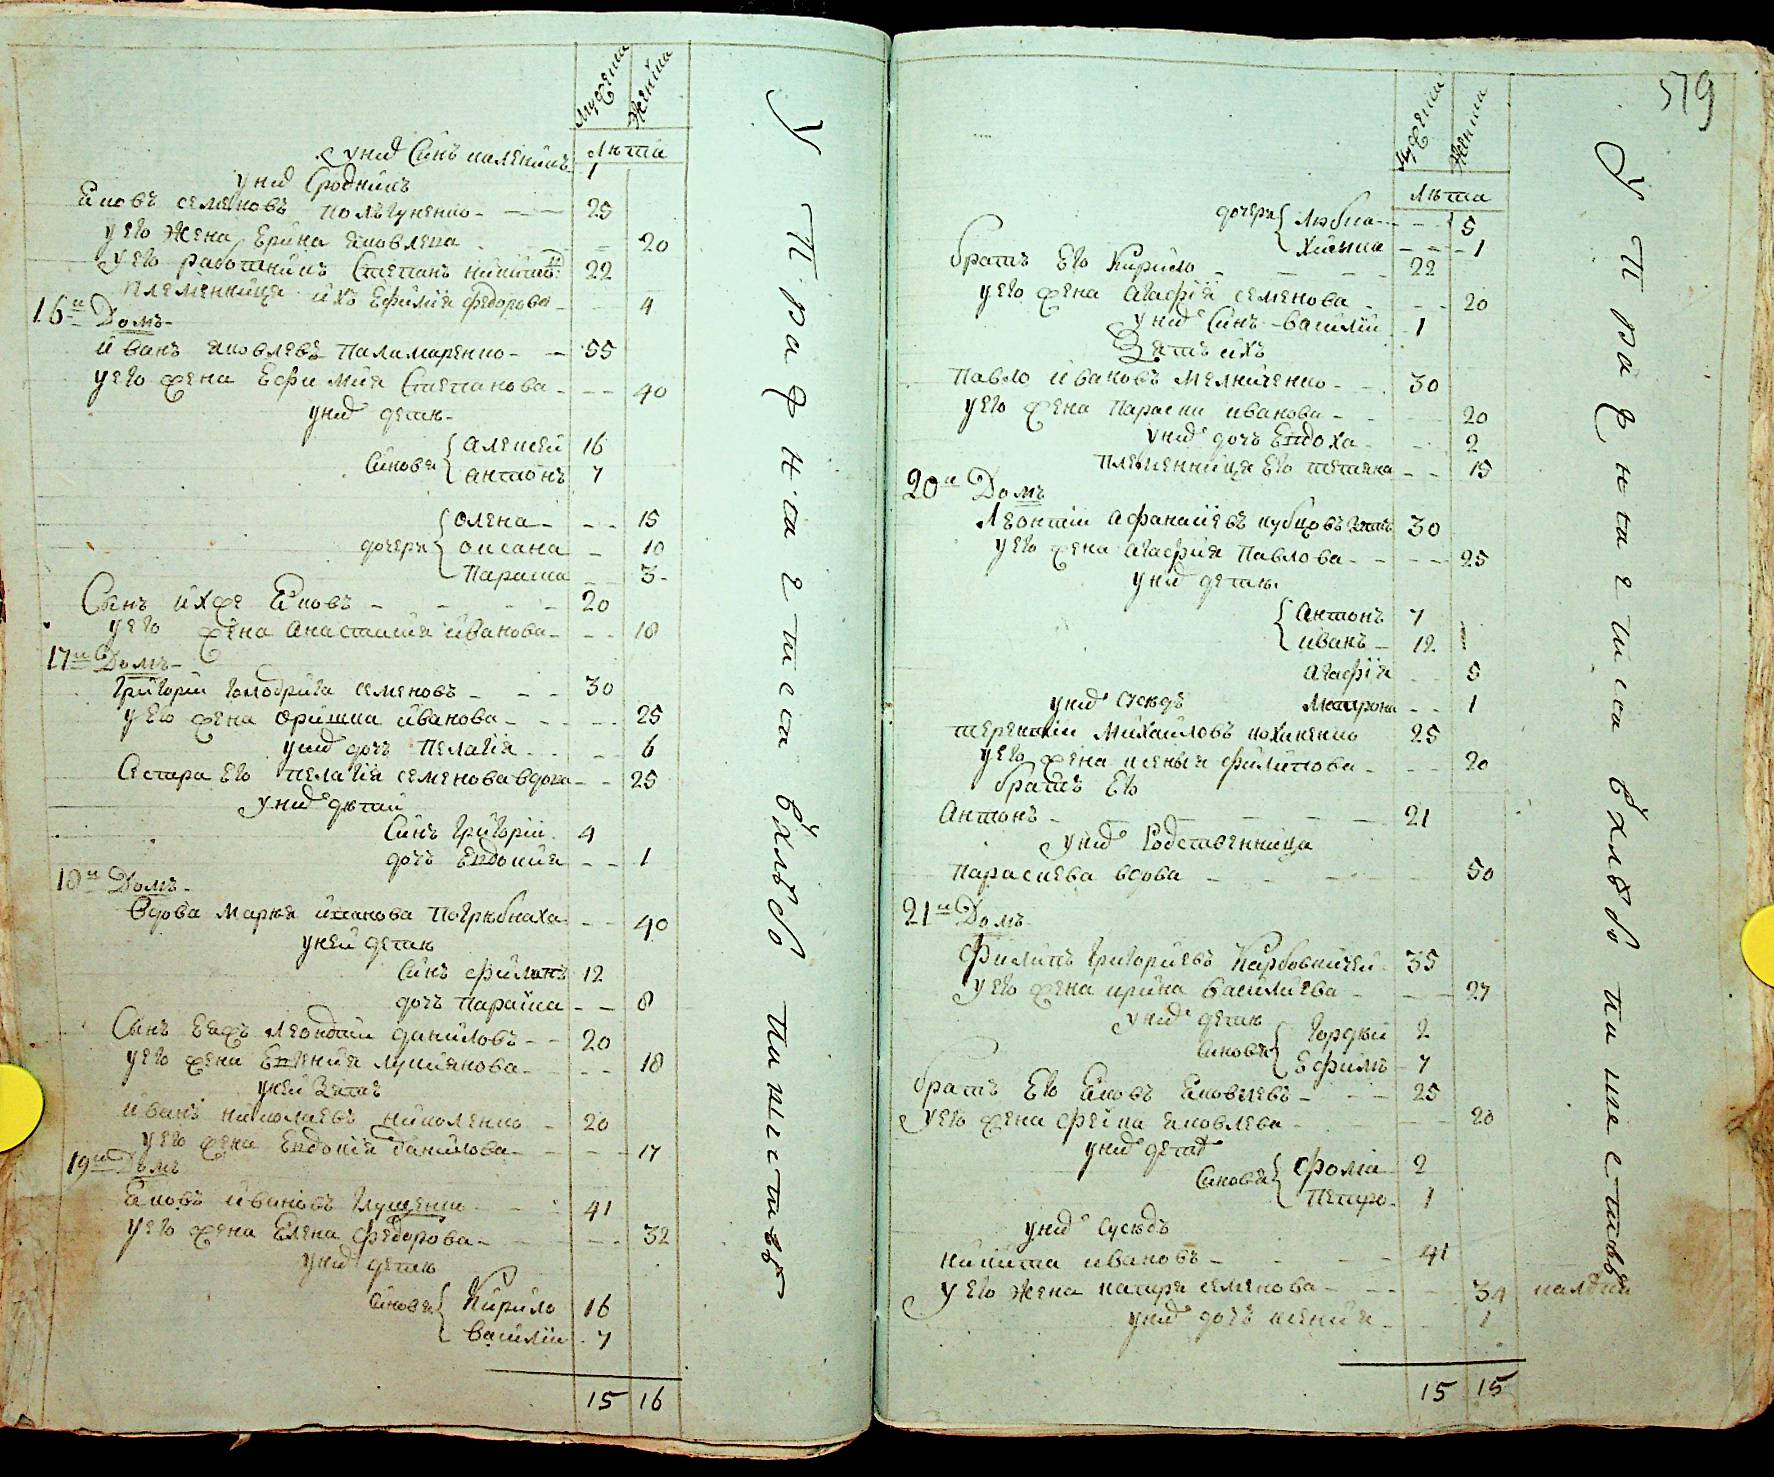 мужеска женска
лѣта
у них Синъ калениkъ 1
у них Сродникъ
Яковъ семеновъ полѣгуненко 25
у его жена Ерина яковлева 20
у его работникъ Степанъ никитовъ 22
племенница ихъ Ефимія федорова 4
16й Домъ
иванъ яковлевъ паламаренко 55
у его жена Ефимия Степанова 40
у них детѣ
Синовя алексей 16
антонъ 7
дочеры олена 15
оксана 10
параска 3
Сынъ ихже Яковъ 20
у его жена анастасия иванова 18
17й Домъ
григорій голодрига семеновъ 30
у его жена оришка иванова 25
у них дочъ пелагія 6
Сестра его пелагія семенова вдова 25
у них дѣтай
Синъ григорій 4
дочъ Евдокия 1
18й Домъ
вдова марья иванова погрѣбнаха 40
у ней детѣ
Синъ филипъ 12
дочъ параска 8
Сынъ Еяжъ леондій даниловъ 20
у его жена Евгения лукиянова 18
у ней Зять
иванъ николаевъ николенко 20
у его жена Евдокія данилова 17
19й Домъ
Яковъ ивановъ глущенко 41
у его жена Елена федорова 32
у них детѣ
Синовя Кирило 16
василій 7
15 16
У праж нса г т и с са в хлѣбо пашествѣ
519
мужеска женска
лѣта
дочеры любка 5
химка 1
братъ Его Кирило 22
у его жена агафія семенова 20
у них Синъ василій 1
Зять ихъ
павло ивановъ мелниченко 30
у его жена параска иванова 20
у них дочъ Евдоха 2
племенница его тетяна 15
20й Домъ
леонтій афанасіевъ кубцовъ зять 30
у его жена агафия павлова 25
у них детѣ
антонъ 7
иванъ 12
агафія 5
мотрона 1
у них сусѣдъ
терентій михайловъ кохненко 25
у его жена ксенья филипова 20
братъ Его
антонъ 21
у них Родственница
параскева вдова 50
21й Домъ
филипъ григориевъ Карбовничей 35
у его жена ирина василиева 27
у них детѣ
Синовя гордѣй 2
Ефимъ 7
братъ Его Яковъ Яковлевъ 25
у его жена фекла яковлева 20
у них детѣ
Синовя фома 2
петро 1
у них сусѣдъ
никита ивановъ 41
у его жена катря семенова 34
у них дочъ ксенія 1
15 15
У праж нса г т и с са в хлѣбо пашествѣ